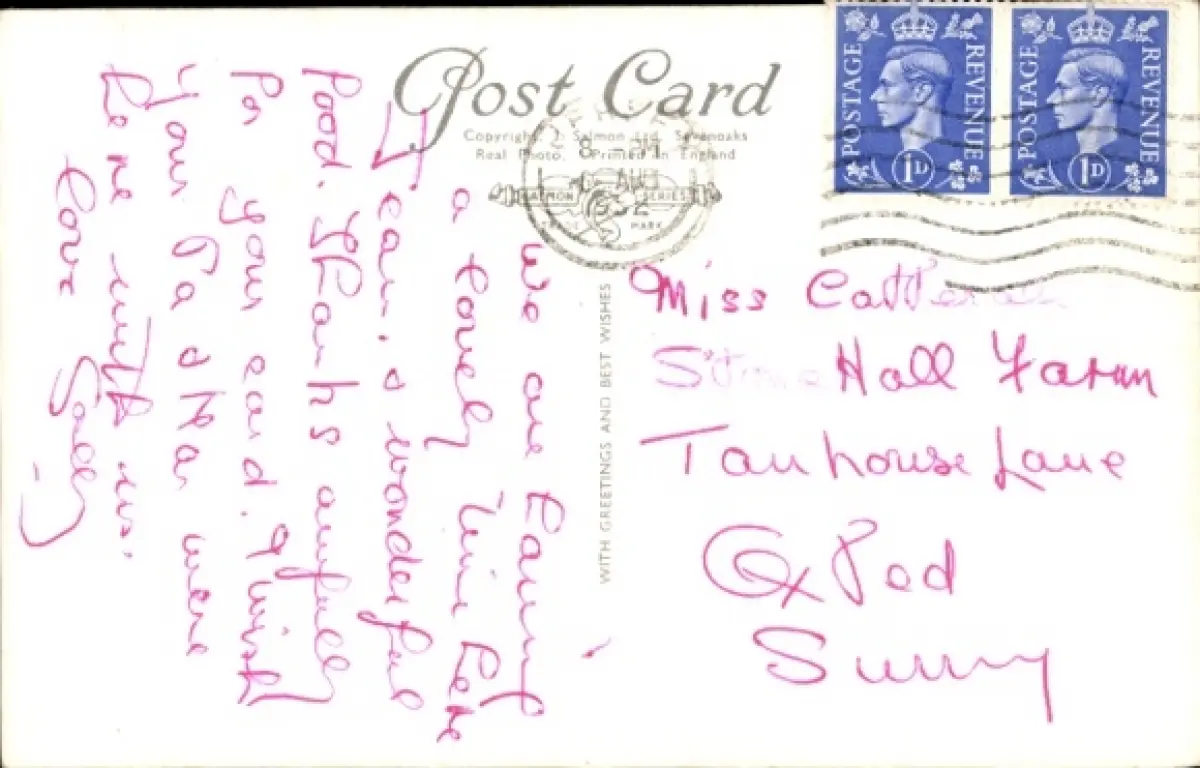 Post Card
Copyright, J. Salmon Ltd. Sevenoaks
Real Photo. Printed in England
SALMON SERIES
MARK
8 -
1952
POSTAGE REVENUE
1D
POSTAGE REVENUE
1D
WITH GREETINGS AND BEST WISHES
We are having
a lovely time here
Jean, a wonderful
pool. Thanks awfully
for your card. I wish
you Pa & Ma were
here with us.
love
Miss
Hall Farm
Tanhouse Lane
Oxted
Surrey